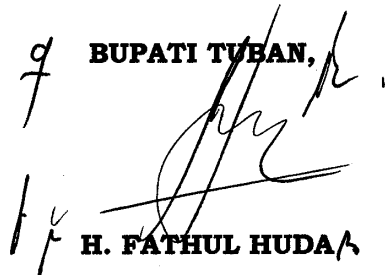 BUPATI TUBAN,
H. FATHUL HUDA